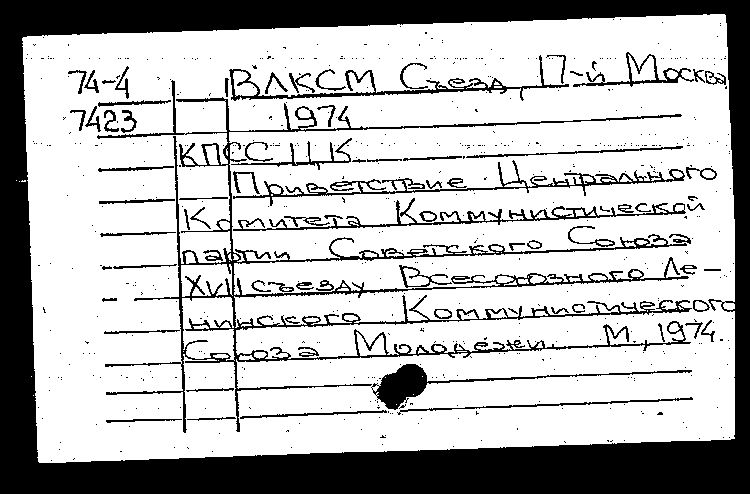 74-4 ВЛКСМ Съезд, 17-й Москва
7423 1974
КПСС ЦК
Приветствие Центрального
Комитета Коммунистической
партии Советского Союза
XVII съезду Всесоюзного Ле-
нинского Коммунистического
Союза Молодежи. М., 1974.